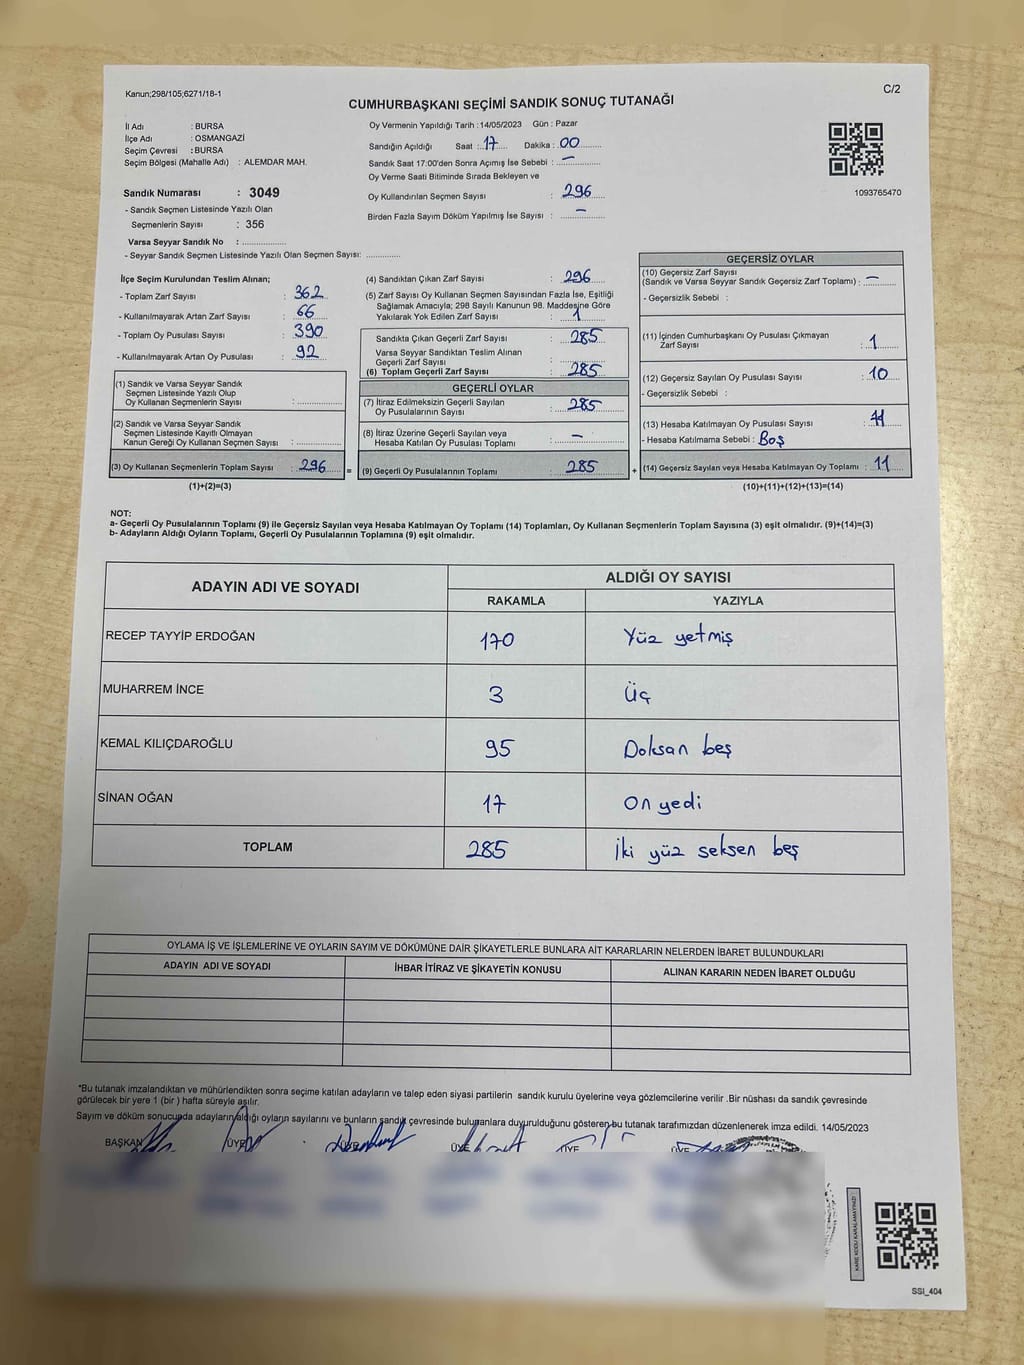 Kanun;298/105;6271/18-1
C/2
CUMHURBAŞKANI SEÇİMİ SANDIK SONUÇ TUTANAĞI
İl Adı : BURSA
İlçe Adı : OSMANGAZİ
Seçim Çevresi : BURSA
Seçim Bölgesi (Mahalle Adı) : ALEMDAR MAH.
Sandık Numarası : 3049
- Sandık Seçmen Listesinde Yazılı Olan
Seçmenlerin Sayısı : 356
Varsa Seyyar Sandık No : ..............
- Seyyar Sandık Seçmen Listesinde Yazılı Olan Seçmen Sayısı: ..............
Oy Vermenin Yapıldığı Tarih :14/05/2023 Gün : Pazar
Sandığın Açıldığı Saat :.17.... Dakika :.00....
Sandık Saat 17:00'den Sonra Açımış İse Sebebi : —
Oy Verme Saati Bitiminde Sırada Bekleyen ve
Oy Kullandırılan Seçmen Sayısı : 296
Birden Fazla Sayım Döküm Yapılmış İse Sayısı : —
1093765470
İlçe Seçim Kurulundan Teslim Alınan;
- Toplam Zarf Sayısı : 362
- Kullanılmayarak Artan Zarf Sayısı : 66
- Toplam Oy Pusulası Sayısı : 390
- Kullanılmayarak Artan Oy Pusulası : 92
(1) Sandık ve Varsa Seyyar Sandık
Seçmen Listesinde Yazılı Olup
Oy Kullanan Seçmenlerin Sayısı : ..............
(2) Sandık ve Varsa Seyyar Sandık
Seçmen Listesinde Kayıtlı Olmayan
Kanun Gereği Oy Kullanan Seçmen Sayısı : ..............
(3) Oy Kullanan Seçmenlerin Toplam Sayısı : 296 =
(1)+(2)=(3)
(4) Sandıktan Çıkan Zarf Sayısı : 296
(5) Zarf Sayısı Oy Kullanan Seçmen Sayısından Fazla İse, Eşitliği
Sağlamak Amacıyla; 298 Sayılı Kanunun 98. Maddesine Göre
Yakılarak Yok Edilen Zarf Sayısı : 1
Sandıkta Çıkan Geçerli Zarf Sayısı : 285
Varsa Seyyar Sandıktan Teslim Alınan
Geçerli Zarf Sayısı :
(6) Toplam Geçerli Zarf Sayısı : 285
GEÇERLİ OYLAR
(7) İtiraz Edilmeksizin Geçerli Sayılan
Oy Pusulalarının Sayısı : 285
(8) İtiraz Üzerine Geçerli Sayılan veya
Hesaba Katılan Oy Pusulası Toplamı : —
(9) Geçerli Oy Pusulalarının Toplamı : 285 +
GEÇERSİZ OYLAR
(10) Geçersiz Zarf Sayısı
(Sandık ve Varsa Seyyar Sandık Geçersiz Zarf Toplamı) : —
- Geçersizlik Sebebi :
(11) İçinden Cumhurbaşkanı Oy Pusulası Çıkmayan
Zarf Sayısı : 1
(12) Geçersiz Sayılan Oy Pusulası Sayısı : 10
- Geçersizlik Sebebi :
(13) Hesaba Katılmayan Oy Pusulası Sayısı :
- Hesaba Katılmama Sebebi : Boş
(14) Geçersiz Sayılan veya Hesaba Katılmayan Oy Toplamı : 11
(10)+(11)+(12)+(13)=(14)
NOT:
a- Geçerli Oy Pusulalarının Toplamı (9) ile Geçersiz Sayılan veya Hesaba Katılmayan Oy Toplamı (14) Toplamları, Oy Kullanan Seçmenlerin Toplam Sayısına (3) eşit olmalıdır. (9)+(14)=(3)
b- Adayların Aldığı Oyların Toplamı, Geçerli Oy Pusulalarının Toplamına (9) eşit olmalıdır.
ADAYIN ADI VE SOYADI ALDIĞI OY SAYISI
RAKAMLA YAZIYLA
RECEP TAYYİP ERDOĞAN 170 Yüz yetmiş
MUHARREM İNCE 3 Üç
KEMAL KILIÇDAROĞLU 95 Doksan beş
SİNAN OĞAN 17 On yedi
TOPLAM 285 İki yüz seksen beş
OYLAMA İŞ VE İŞLEMLERİNE VE OYLARIN SAYIM VE DÖKÜMÜNE DAİR ŞİKAYETLERLE BUNLARA AİT KARARLARIN NELERDEN İBARET BULUNDUKLARI
ADAYIN ADI VE SOYADI İHBAR İTİRAZ VE ŞİKAYETİN KONUSU ALINAN KARARIN NEDEN İBARET OLDUĞU
*Bu tutanak imzalandıktan ve mühürlendikten sonra seçime katılan adayların ve talep eden siyasi partilerin sandık kurulu üyelerine veya gözlemcilerine verilir .Bir nüshası da sandık çevresinde
görülecek bir yere 1 (bir ) hafta süreyle asılır.
Sayım ve döküm sonucunda adayların aldığı oyların sayılarını ve bunların sandık çevresinde bulunanlara duyurulduğunu gösteren bu tutanak tarafımızdan düzenlenerek imza edildi. 14/05/2023
BAŞKAN ÜYE ÜYE ÜYE ÜYE ÜYE
KARE KODU KARALAMAYINIZ!
SSI_404